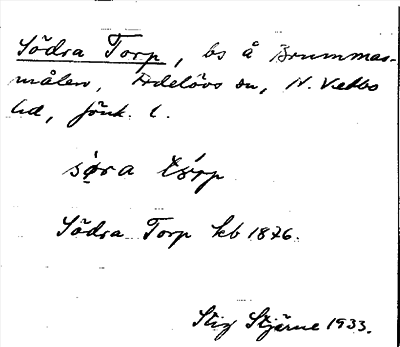 Södra Torp, bs å Brummas-
målen, Adelövs sn, N. Vedbo
hd, Jönk. l.
sø̀ra tórp
Södra Torp kb 1876.
Stig Stjärne 1933.